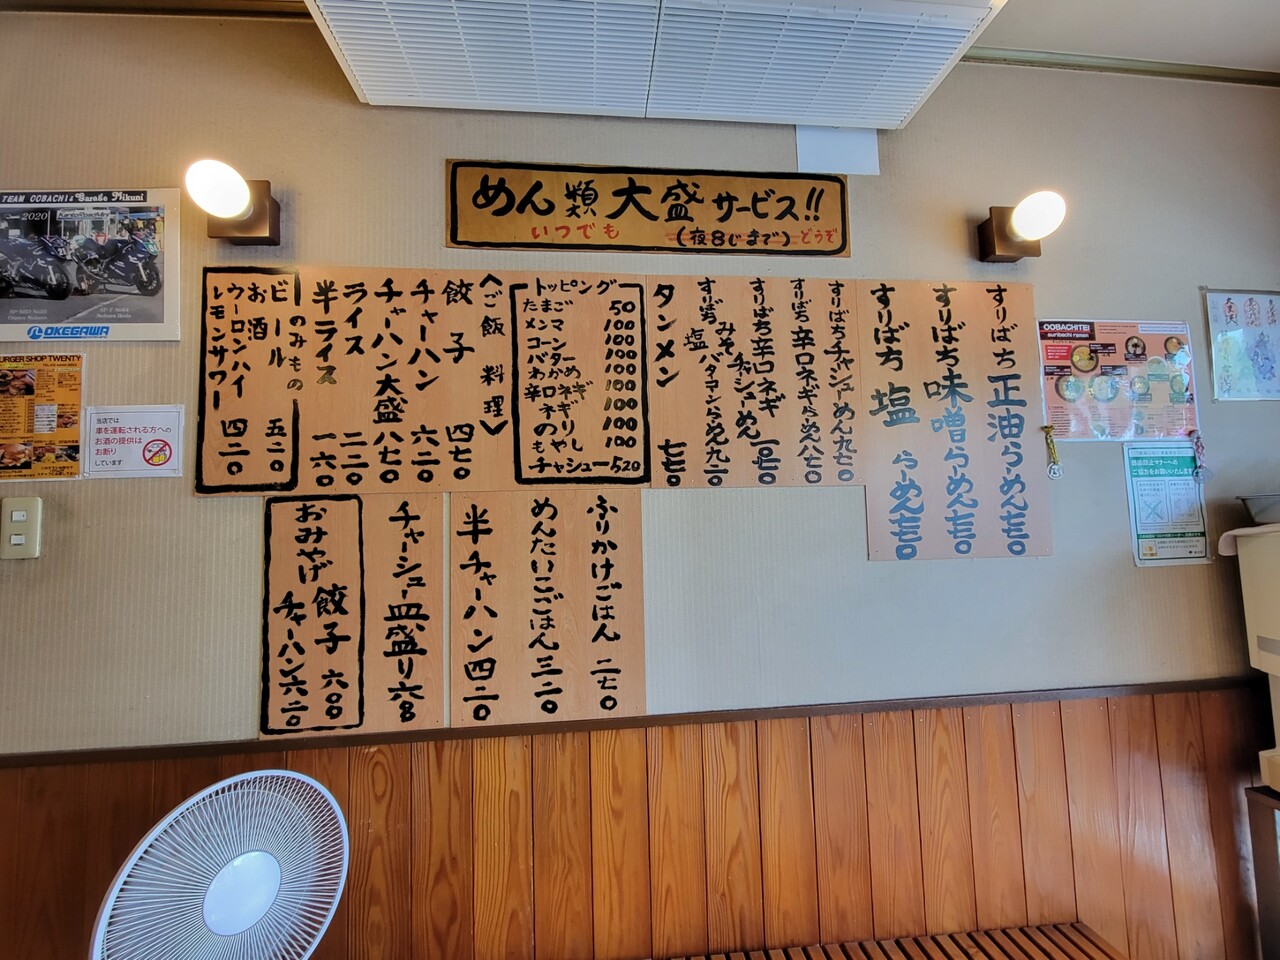 めん類大盛サービス!!
いつでも(夜8じまで)どうぞ
すりばち正油らーめん七七〇
すりばち味噌らーめん七七〇
すりばち塩らーめん七七〇
すりばちチャシューめん九七〇
すりばち辛口ネギらーめん八七〇
すりばち辛口ネギみそチャシューめん一〇七〇
すりばち塩バタマンらーめん九二〇
タンメン七七〇
トッピング
たまご 50
メンマ 100
コーン 100
バター 100
わかめ 100
辛口ネギ 100
ネギ 100
のり 100
もやし 100
チャシュー 520
〈ご飯料理〉
餃子 四七〇
チャーハン 六二〇
チャーハン大盛 八七〇
ライス 二二〇
半ライス 一六〇
のみもの
ビール 五二〇
お酒
ウーロンハイ
レモンサワー 四二〇
ふりかけごはん 二七〇
めんたいこごはん 三二〇
半チャーハン 四二〇
チャーシュー皿盛り
おみやげ
餃子 六〇〇
チャーハン 六二〇
TEAM OOBACHI & Garage Mikuni
2020
OKEGAWA
BURGER SHOP TWENTY
当店では
車を運転される方への
お酒の提供は
お断り
しています
OOBACHITEI
suribachi ramen